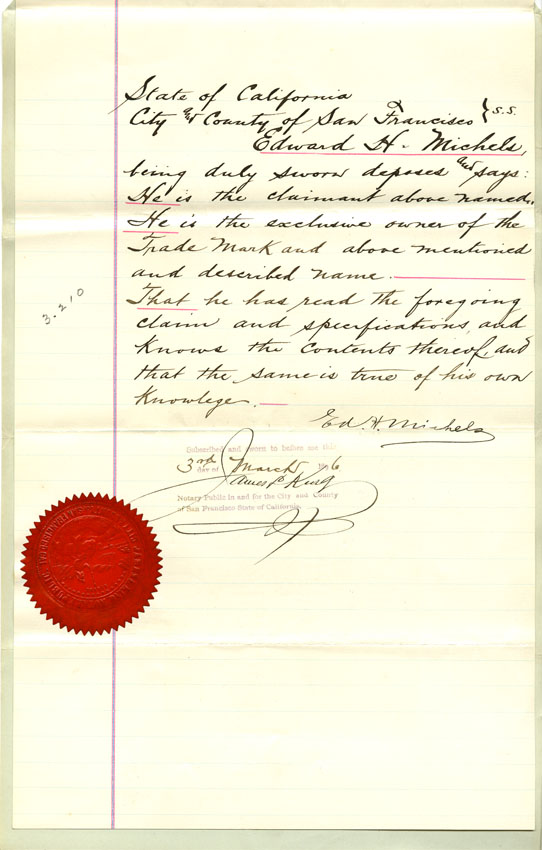 State of California
City and County of San Francisco } S.S.
Edward H. Michels,
being duly sworn deposes and says:
He is the claimant above named.
He is the exclusive owner of the
Trade Mark and above mentioned
and described name.
That he has read the foregoing
claim and specfications, and
Knows the Contents thereof, and
that the same is true of his own
Knowlege.
3.210
Ed. H. Michels
Subscribed and sworn to before me this
3rd day of March 6
James L. King
Notary Public in and for the City and County
of San Francisco State of California.